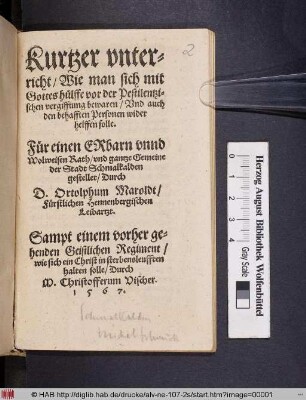 2
Kurtzer vnter-
richt / Wie man sich mit
Gottes hülffe vor der Pestilentzi-
schen vergifftung bewaren / Vnd auch
den behafften Personen wider
helffen solle.
Für einen ERbarn vnnd
Wolweisen Rath / vnd gantze Gemeine
der Stadt Schmalkalden
gestellet / Durch
D. Ortolphum Maroldt /
Fürstlichen Hennenbergischen
Leibartzt.
Sampt einem vorher ge-
henden Geistlichen Regiment /
wie sich ein Christ in sterbensleufften
halten solle / Durch
M. Christofferum Vischer.
1 5 6 7.
Schmalkalden
Herzog August Bibliothek Wolfenbüttel
Gray Scale
© HAB http://diglib.hab.de/drucke/alv-ne-107-2s/start.htm?image=00001